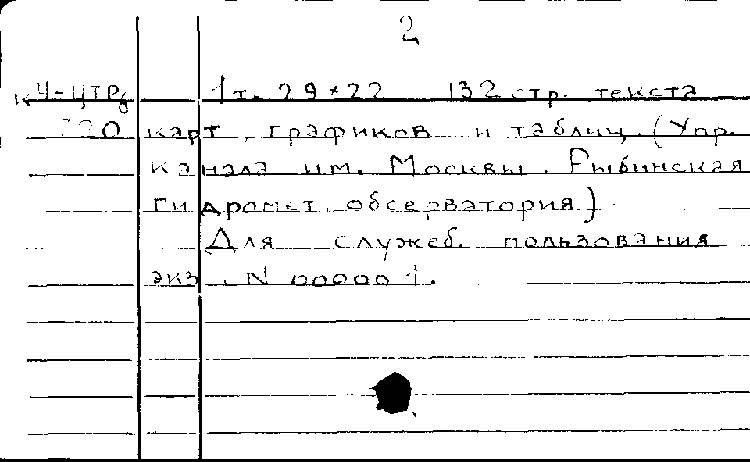 2
Ч-ЦТР 1 т. 29*22 132 стр. текста
карт, графиков и таблиц. (Упр.
канала им. Москвы. Рыбинская
гидромет. обсерватория)
Для служеб. пользования
экз. N 000001.